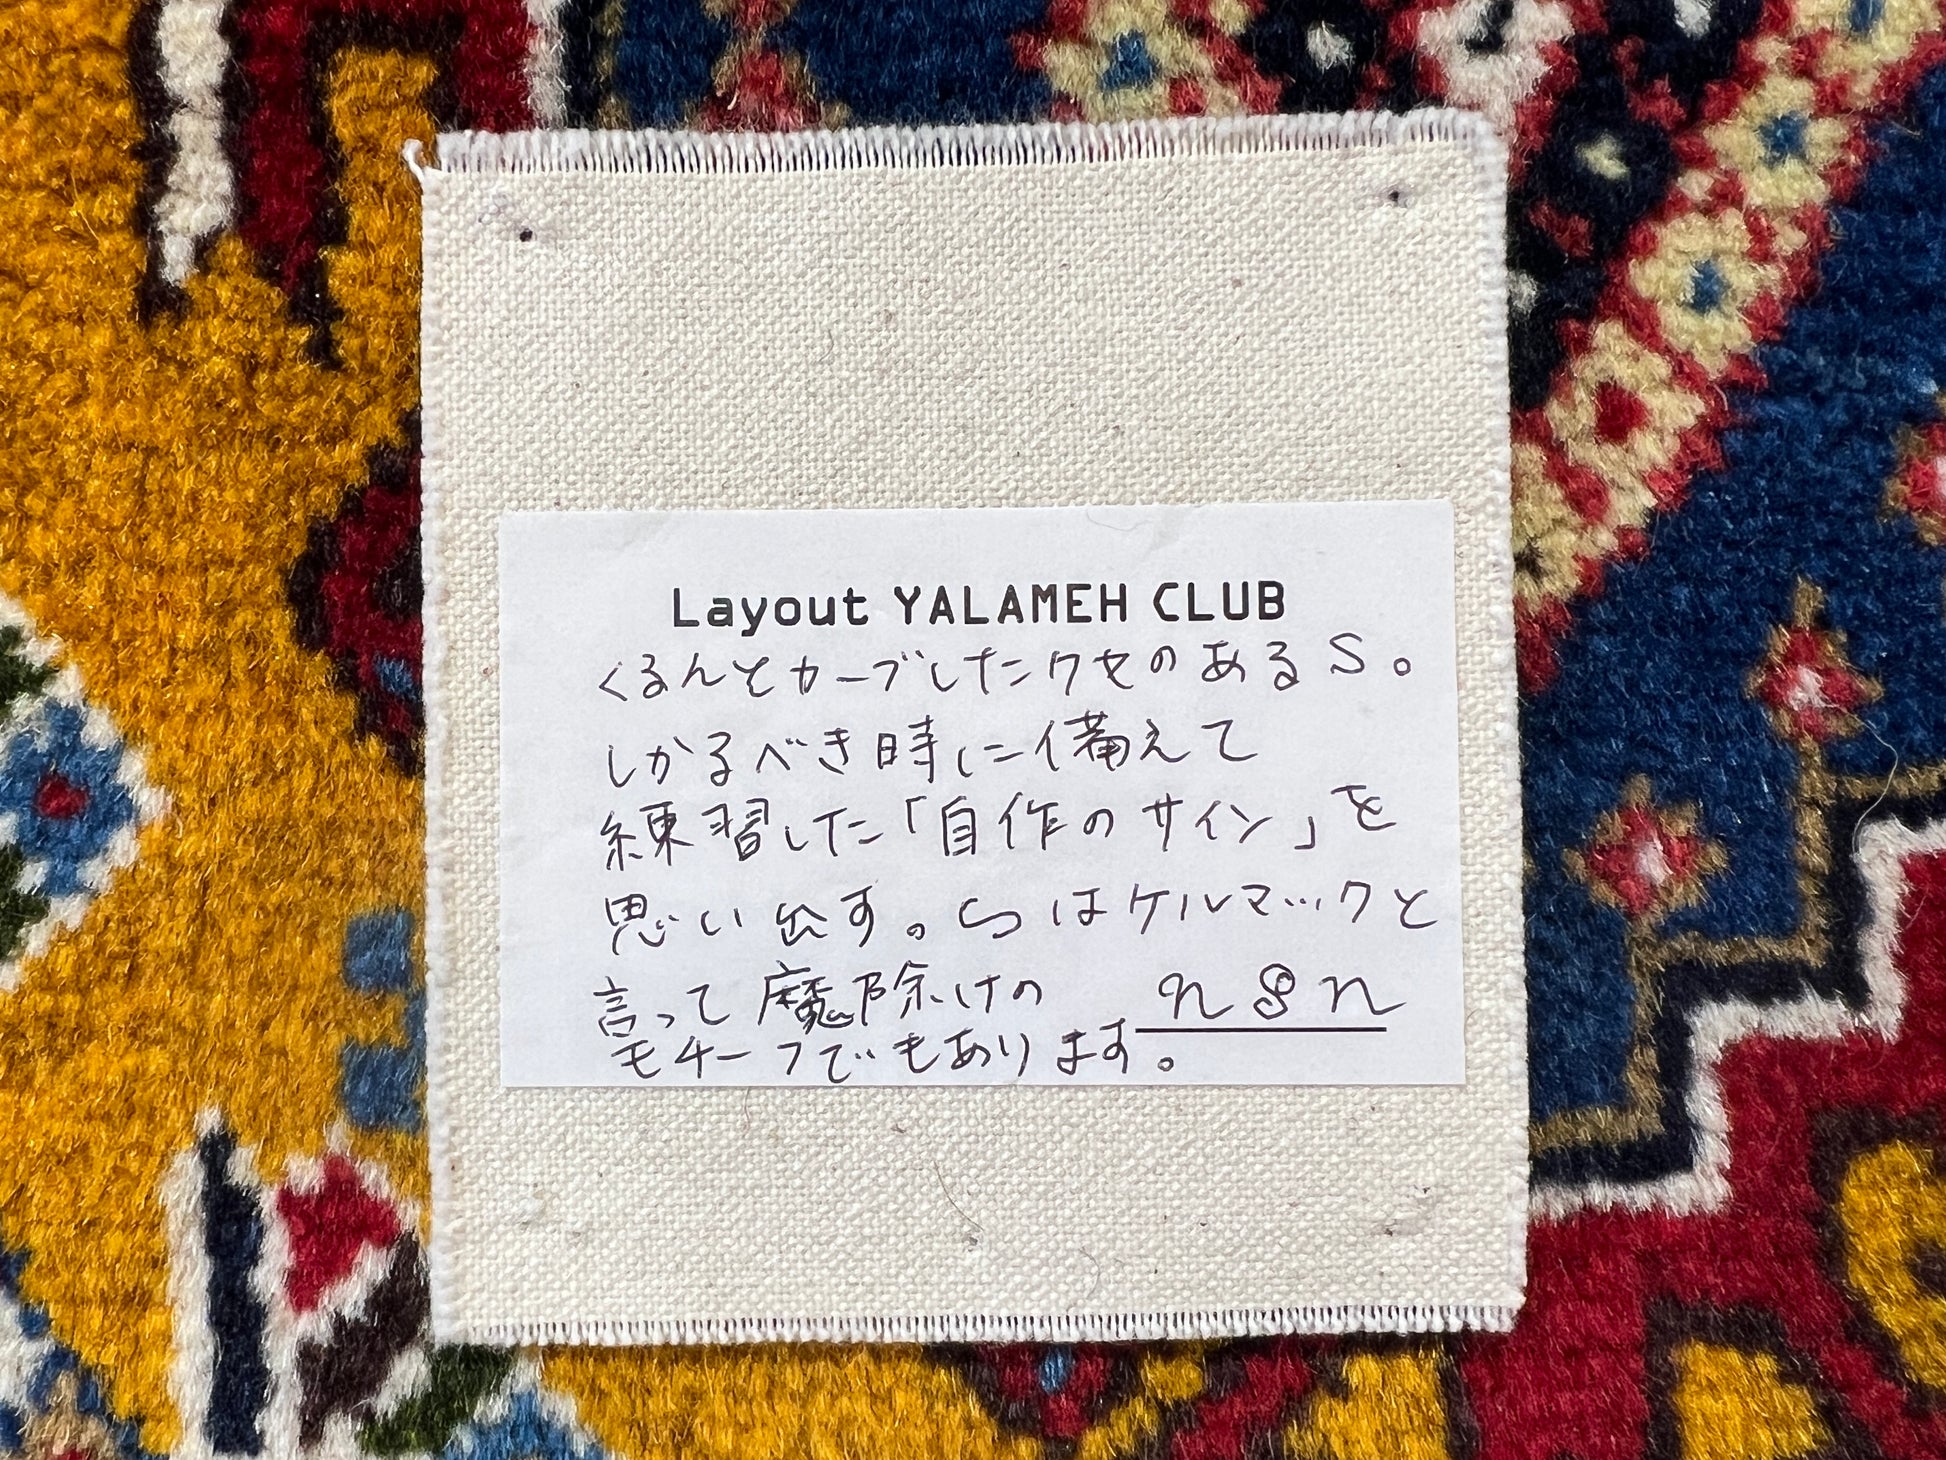 Layout YALAMEH CLUB
くるんとカーブしたクセのあるS。
しかるべき時に備えて
練習した「自作のサイン」を
思い出す。Sはケルマックと
言って魔除けの
モチーフでもあります。
nSn